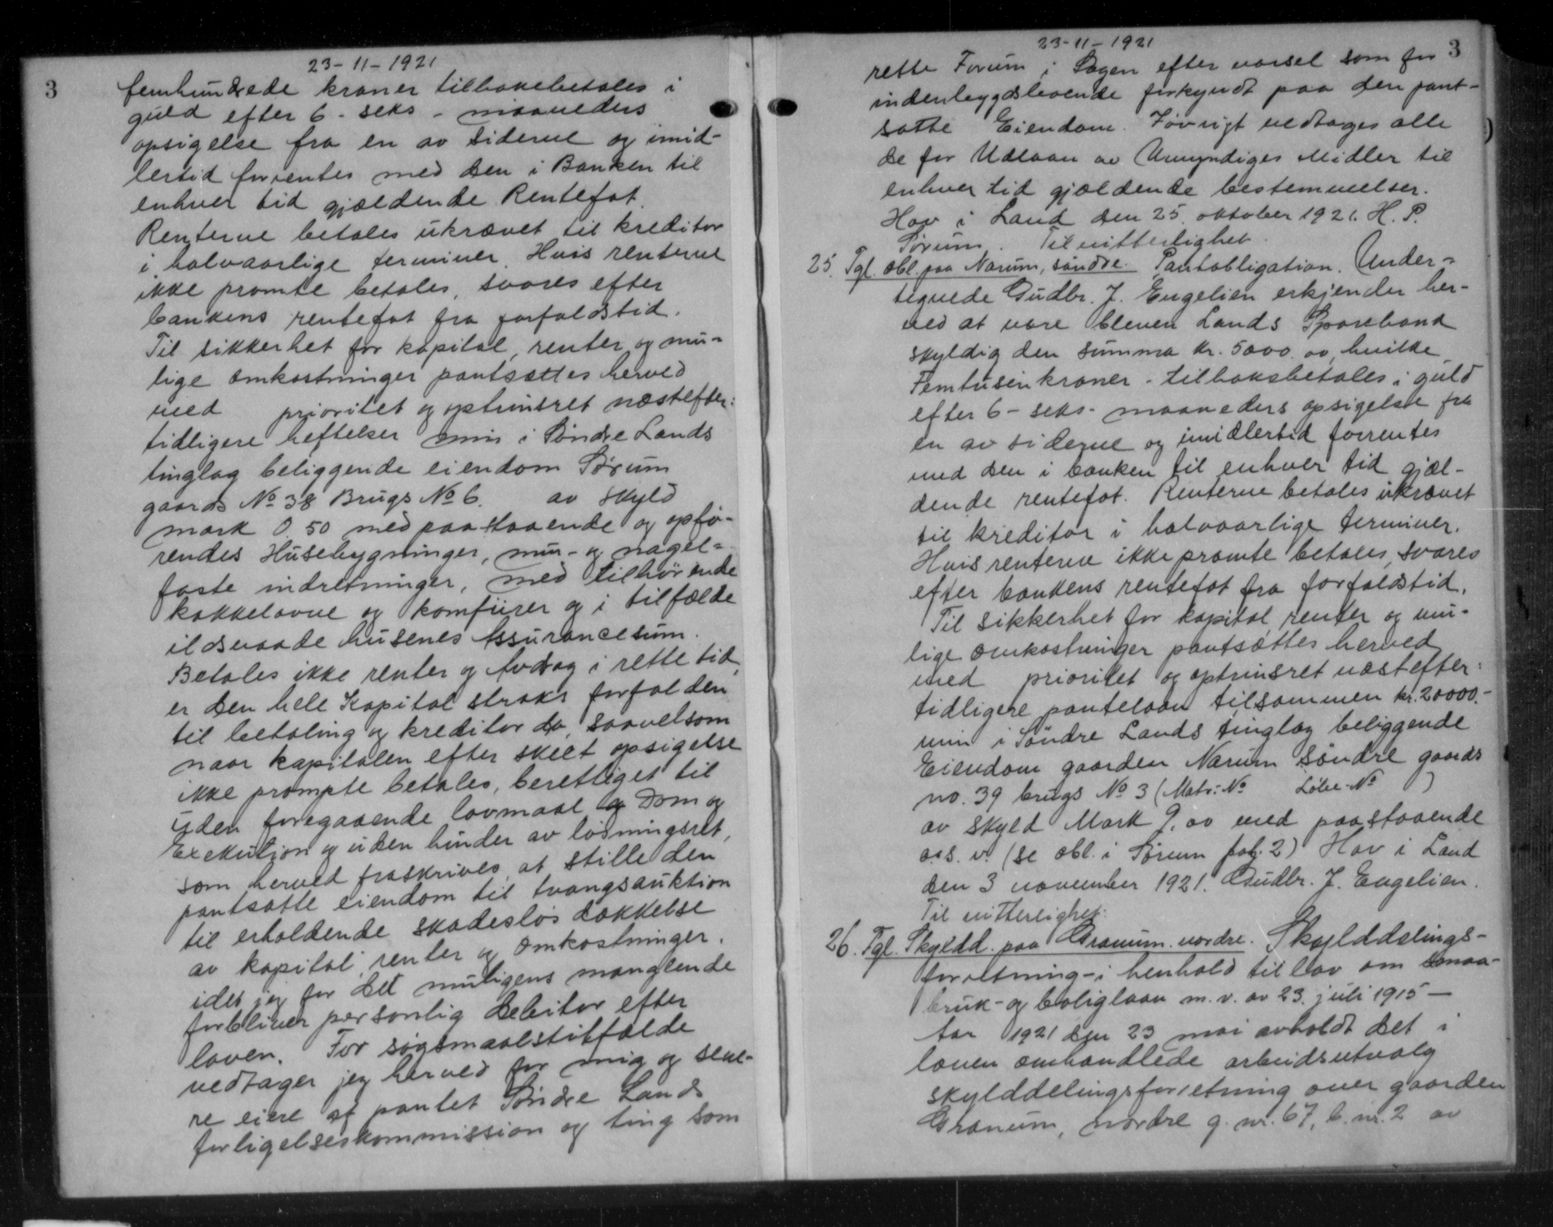 3
23-11-1921
femhundrede kroner tilbakebetales i
guld efter 6 - seks - maaneders
opsigelse fra en av siderne og imid-
lertid forrentes med den i Banken til
enhver tid gjældende Rentefot.
Renterne betales ukrævet til kreditor
i halvaarlige terminer. Hvis renterne
ikke promte betales, svares efter
bankens rentefot fra forfaldstid.
Til sikkerhet for kapital, renter og mu-
lige omkostninger pantsættes herved
med prioritet og optrinsret næstefter:
tidligere heftelser min i Søndre Lands
tinglag beliggende eiendom Sørum
gaards No 38 Brugs No 6. av skyld
mark 0.50 med paastaaende og opfø-
rendes Husebygninger, mur- og nagel-
faste indretninger, med tilhørende
kakkelovne og komfurer og i tilfælde
ildsvaade husenes Assurancesum.
Betales ikke renter og Avdrag i rette tid,
er den hele Kapital straks forfalden
til betaling og kreditor da, saavelsom
naar kapitalen efter skeet opsigelse
ikke prompte betales, berettiget til
uden foregaaende lovmaal og Dom og
Exekution og uden hinder av løsningsret,
som herved fraskrives, at stille den
pantsatte eiendom til tvangsauktion
til erholdende skadesløs dækkelse
av kapital, renter og omkostninger,
idet jeg for det muligens manglende
forbliver personlig debitor efter
loven. For søgsmaalstilfælde
vedtager jeg herved for mig og sene-
re eiere af pantet Søndre Lands
forligelseskommission og ting som
23-11-1921
3
rette Forum i Sagen efter varsel som for
indenbygdsboende forkyndt paa den pant-
satte Eiendom. Iøvrigt vedtages alle
de for Udlaan av Umyndiges Midler til
enhver tid gjældende bestemmelser.
Hov i Land den 25. oktober 1921. H. P.
Sørum. Til vitterlighet.
25. Tgl. obl. paa Narum, søndre. Pantobligation. Under-
tegnede Gudbr. J. Engelien erkjender her-
ved at være bleven Lands Sparebank
skyldig den summa kr. 5000.00, hvilke
Femtusin kroner - tilbakebetales i guld
efter 6 - seks - maaneders opsigelse fra
en av siderne og imidlertid forrentes
med den i banken til enhver tid gjæl-
dende rentefot. Renterne betales ukrævet
til kreditor i halvaarlige terminer.
Hvis renterne ikke promte betales, svares
efter bankens rentefot fra forfaldstid.
Til sikkerhet for kapital, renter og mu-
lige omkostninger pantsættes herved
med prioritet og optrinsret næstefter:
tidligere pantelaan tilsammen kr. 20000.-
min i Søndre Lands tinglag beliggende
Eiendom gaarden Narum søndre gaards
no. 39 brugs No 3 (Matr: No Løbe-No )
av skyld Mark 9.00 med paastaaende
o.s.v. (se obl. i Sørum fol. 2) Hov i Land
den 3 november 1921. Gudbr. J. Engelien.
Til vitterlighet.
26. Tgl. Skyldd. paa Granum nordre. Skylddelings-
forretning - i henhold til lov om smaa-
bruk- og boliglaan m.v. av 23. juli 1915 -
Aar 1921 den 23 mai avholdt det i
loven omhandlede arbeidsutvalg
skylddelingsforretning over gaarden
Granum, nordre g.nr. 67, b.nr. 2 av